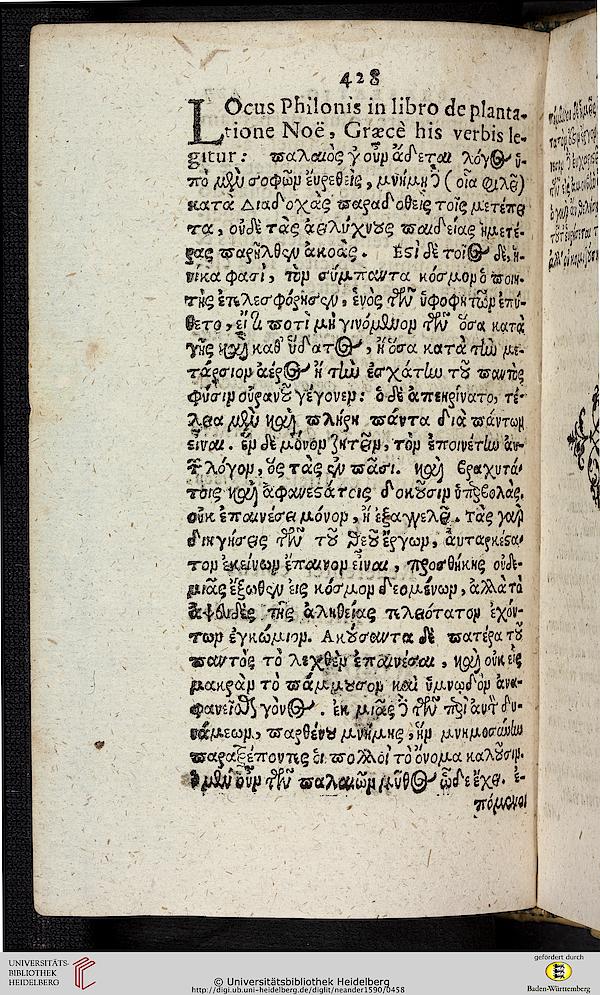 428
LOcus Philonis in libro de planta-
tione Noë, Græcè his verbis le-
gitur: παλαιὸς γοῦν ᾄδεται λόγος ὑ-
πὸ μὲν σοφῶν ἑυρεθεὶς, μνήμῃ δὲ (οἷα φιλεῖ)
κατὰ Διαδοχὰς παραδοθεὶς τοῖς μετέπει
τα, οὐδὲ τὰς ἀειλίχνους παιδείας ἡμετέ-
ρας παρῆλθεν ἀκοάς. Ἐστὶ δὲ τοῖος δε, ἡ-
νίκα φασὶ, τὸν σύμπαντα κόσμον ὁ ποιη-
τὴς ἐτελεσφόρησεν, ἑνὸς τῶν ὑφοφητῶν ἐπύ-
θετο, εἴ τι ποτὶ μὴ γινόμενον τῶν ὅσα κατὰ
γῆς καὶ καθ' ὕδατος, ἢ ὅσα κατὰ τὴν με-
τάρσιον ἀέρος ἢ τὴν ἐσχάτην τοῦ παντὸς
φύσιν οὐρανοῦ γέγονεν: ὁ δὲ ἀπεκρίνατο, τέ-
λεια μὲν καὶ πλήρη πάντα διὰ πάντων
εἶναι. ἓν δὲ μόνον ζητεῖν, τὸν ἐποινέτην αὐ-
τ λόγον, ὃς τὰς ἐν πᾶσι. καὶ βραχυτά-
τοις καὶ ἀφανεστάτοις δοκοῦσιν ὑπερβολὰς,
οὐκ ἐπαινέσει μόνον, ἢ ἐξαγγελεῖ. τὰς γὰρ
διηγήσεις τῶν τοῦ Θεοῦ ἔργων, ἀυταρκέσα-
τον ἐκείνων ἔπαινον εἶναι, προσθήκης οὐδε-
μιᾶς ἔξωθεν εἰς κόσμον δεομένων, ἀλλὰ τὸ
ἀψευδὲς τῆς ἀληθείας τελεότατον ἐχόν-
των ἐγκώμιον. Ακούσαντα δὲ πατέρα τοῦ
παντὸς τὸ λεχθὲν ἐπαινέσαι, καὶ οὐκ εἰς
μακρὰν τὸ πάμμουσον καὶ ὑμνωδὸν ἀνα-
φανεῖσθαι γένος. ἐκ μιᾶς δὲ τῶν περὶ αὐτὸ δυ-
νάμεων, παρθένου μνήμης, ἣν μνημοσύνην
παρατρέποντες οἱ πολλοὶ τὸ ὄνομα καλοῦσιν.
ὁ μὲν οὖν τῶν παλαιῶν μῦθος ὧδε ἔχει. ἑ-
πόμενοι
UNIVERSITÄTS-
BIBLIOTHEK
HEIDELBERG
© Universitätsbibliothek Heidelberg
http://digi.ub.uni-heidelberg.de/diglit/neander1590/0458
gefördert durch
Baden-Württemberg